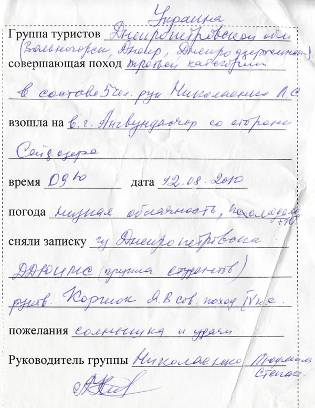 Украина
Группа туристов Днепропетровской обл
(Вольногорск, Днепр, Днепродзержинск)
совершающая поход третьей категории
в составе 5 чел. рук Николаенко ЛС
взошла на в.г. Ангвундасчорр со стороны
Сейдозера
время 09 10 дата 12.08.2010
погода низкая облачность, прохладно
сняли записку гр Днепропетровска
(группа студентов)
руков. Коргиюк А.В сов. поход IV к.с.
пожелания солнышка и удачи
Руководитель группы Николаенко Людмила